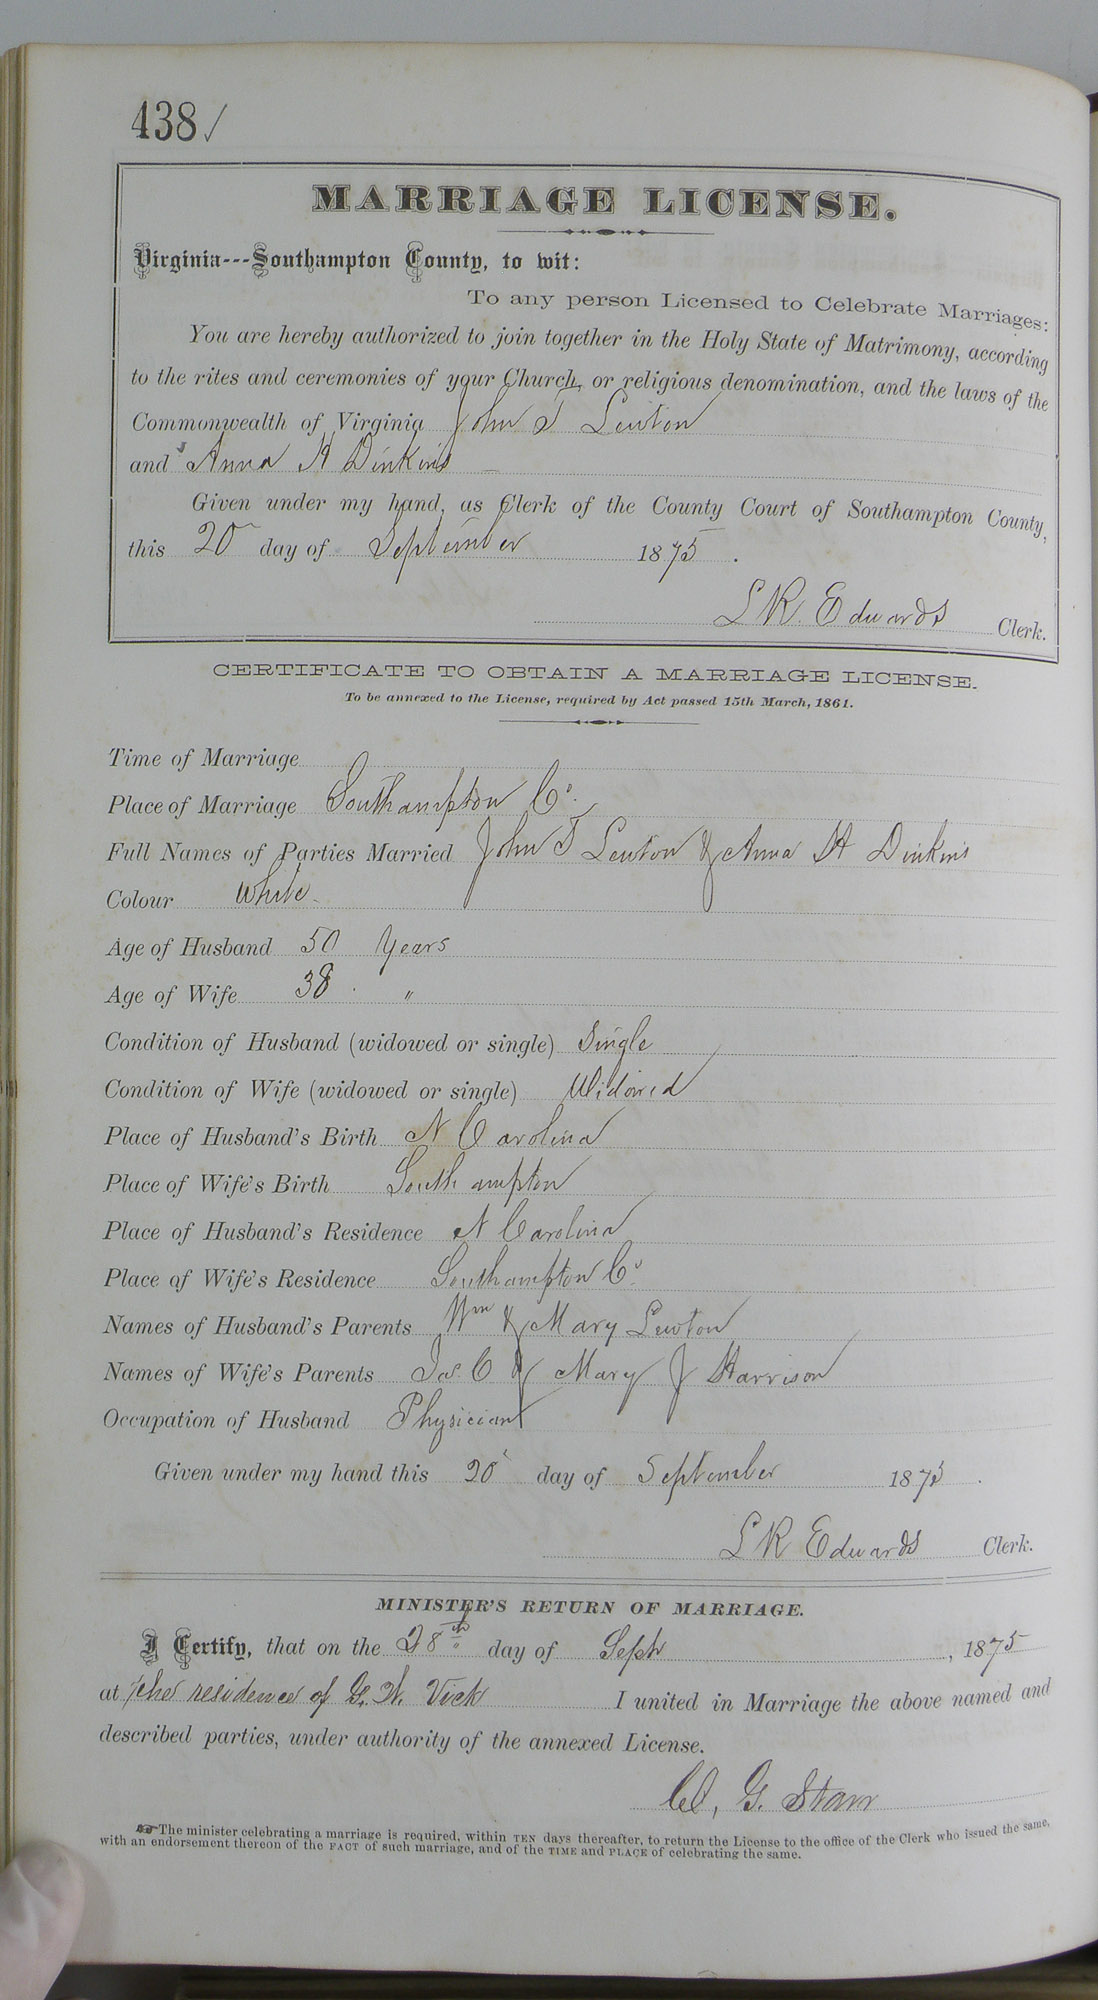 438✓
MARRIAGE LICENSE.
Virginia---Southampton County, to wit:
To any person Licensed to Celebrate Marriages:
You are hereby authorized to join together in the Holy State of Matrimony, according
to the rites and ceremonies of your Church, or religious denomination, and the laws of the
Commonwealth of Virginia John T
and Anna H Dinkins
Given under my hand, as Clerk of the County Court of Southampton County,
this 20 day of September 1875.
L R. Edwards Clerk.
CERTIFICATE TO OBTAIN A MARRIAGE LICENSE.
To be annexed to the License, required by Act passed 15th March, 1861.
Time of Marriage
Place of Marriage Southampton Co.
Full Names of Parties Married John T & Anna H Dinkins
Colour White
Age of Husband 50 Years
Age of Wife 38 "
Condition of Husband (widowed or single) Single
Condition of Wife (widowed or single) Widowed
Place of Husband's Birth N Carolina
Place of Wife's Birth Southampton
Place of Husband's Residence N Carolina
Place of Wife's Residence Southampton Co.
Names of Husband's Parents Wm & Mary
Names of Wife's Parents C & Mary J Harrison
Occupation of Husband Physician
Given under my hand this 20 day of September 1875.
L R Edwards Clerk.
MINISTER'S RETURN OF MARRIAGE.
I Certify, that on the 28th day of Sept, 1875
at the residence of G. W. Vick I united in Marriage the above named and
described parties, under authority of the annexed License.
G. Starr
The minister celebrating a marriage is required, within TEN days thereafter, to return the License to the office of the Clerk who issued the same,
with an endorsement thereon of the FACT of such marriage, and of the TIME and PLACE of celebrating the same.